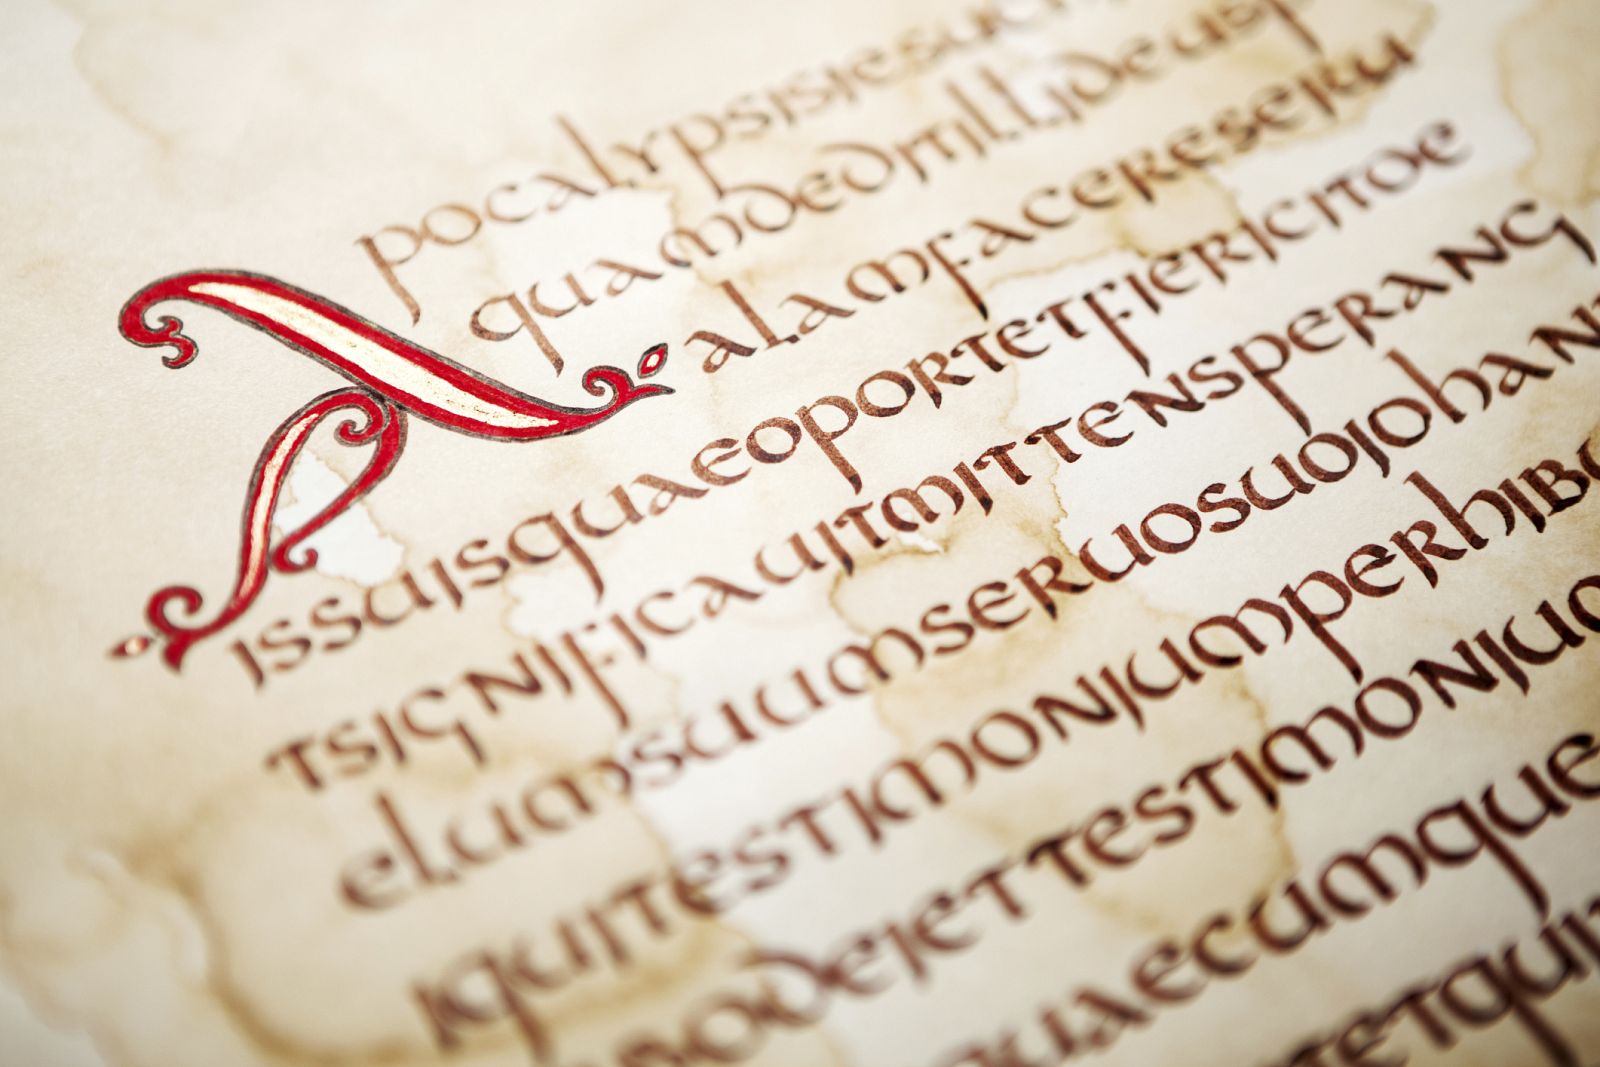 Apocalypsisiesuch
quamdeditillideusp
alamfacereseru
issuisquaeoportetfiericitoe
tsignificauitmittensperang
elumsuumseruosuoiohann
iquitestimoniumperhibu
bodeiettestimoniu
uaecumque
etqui